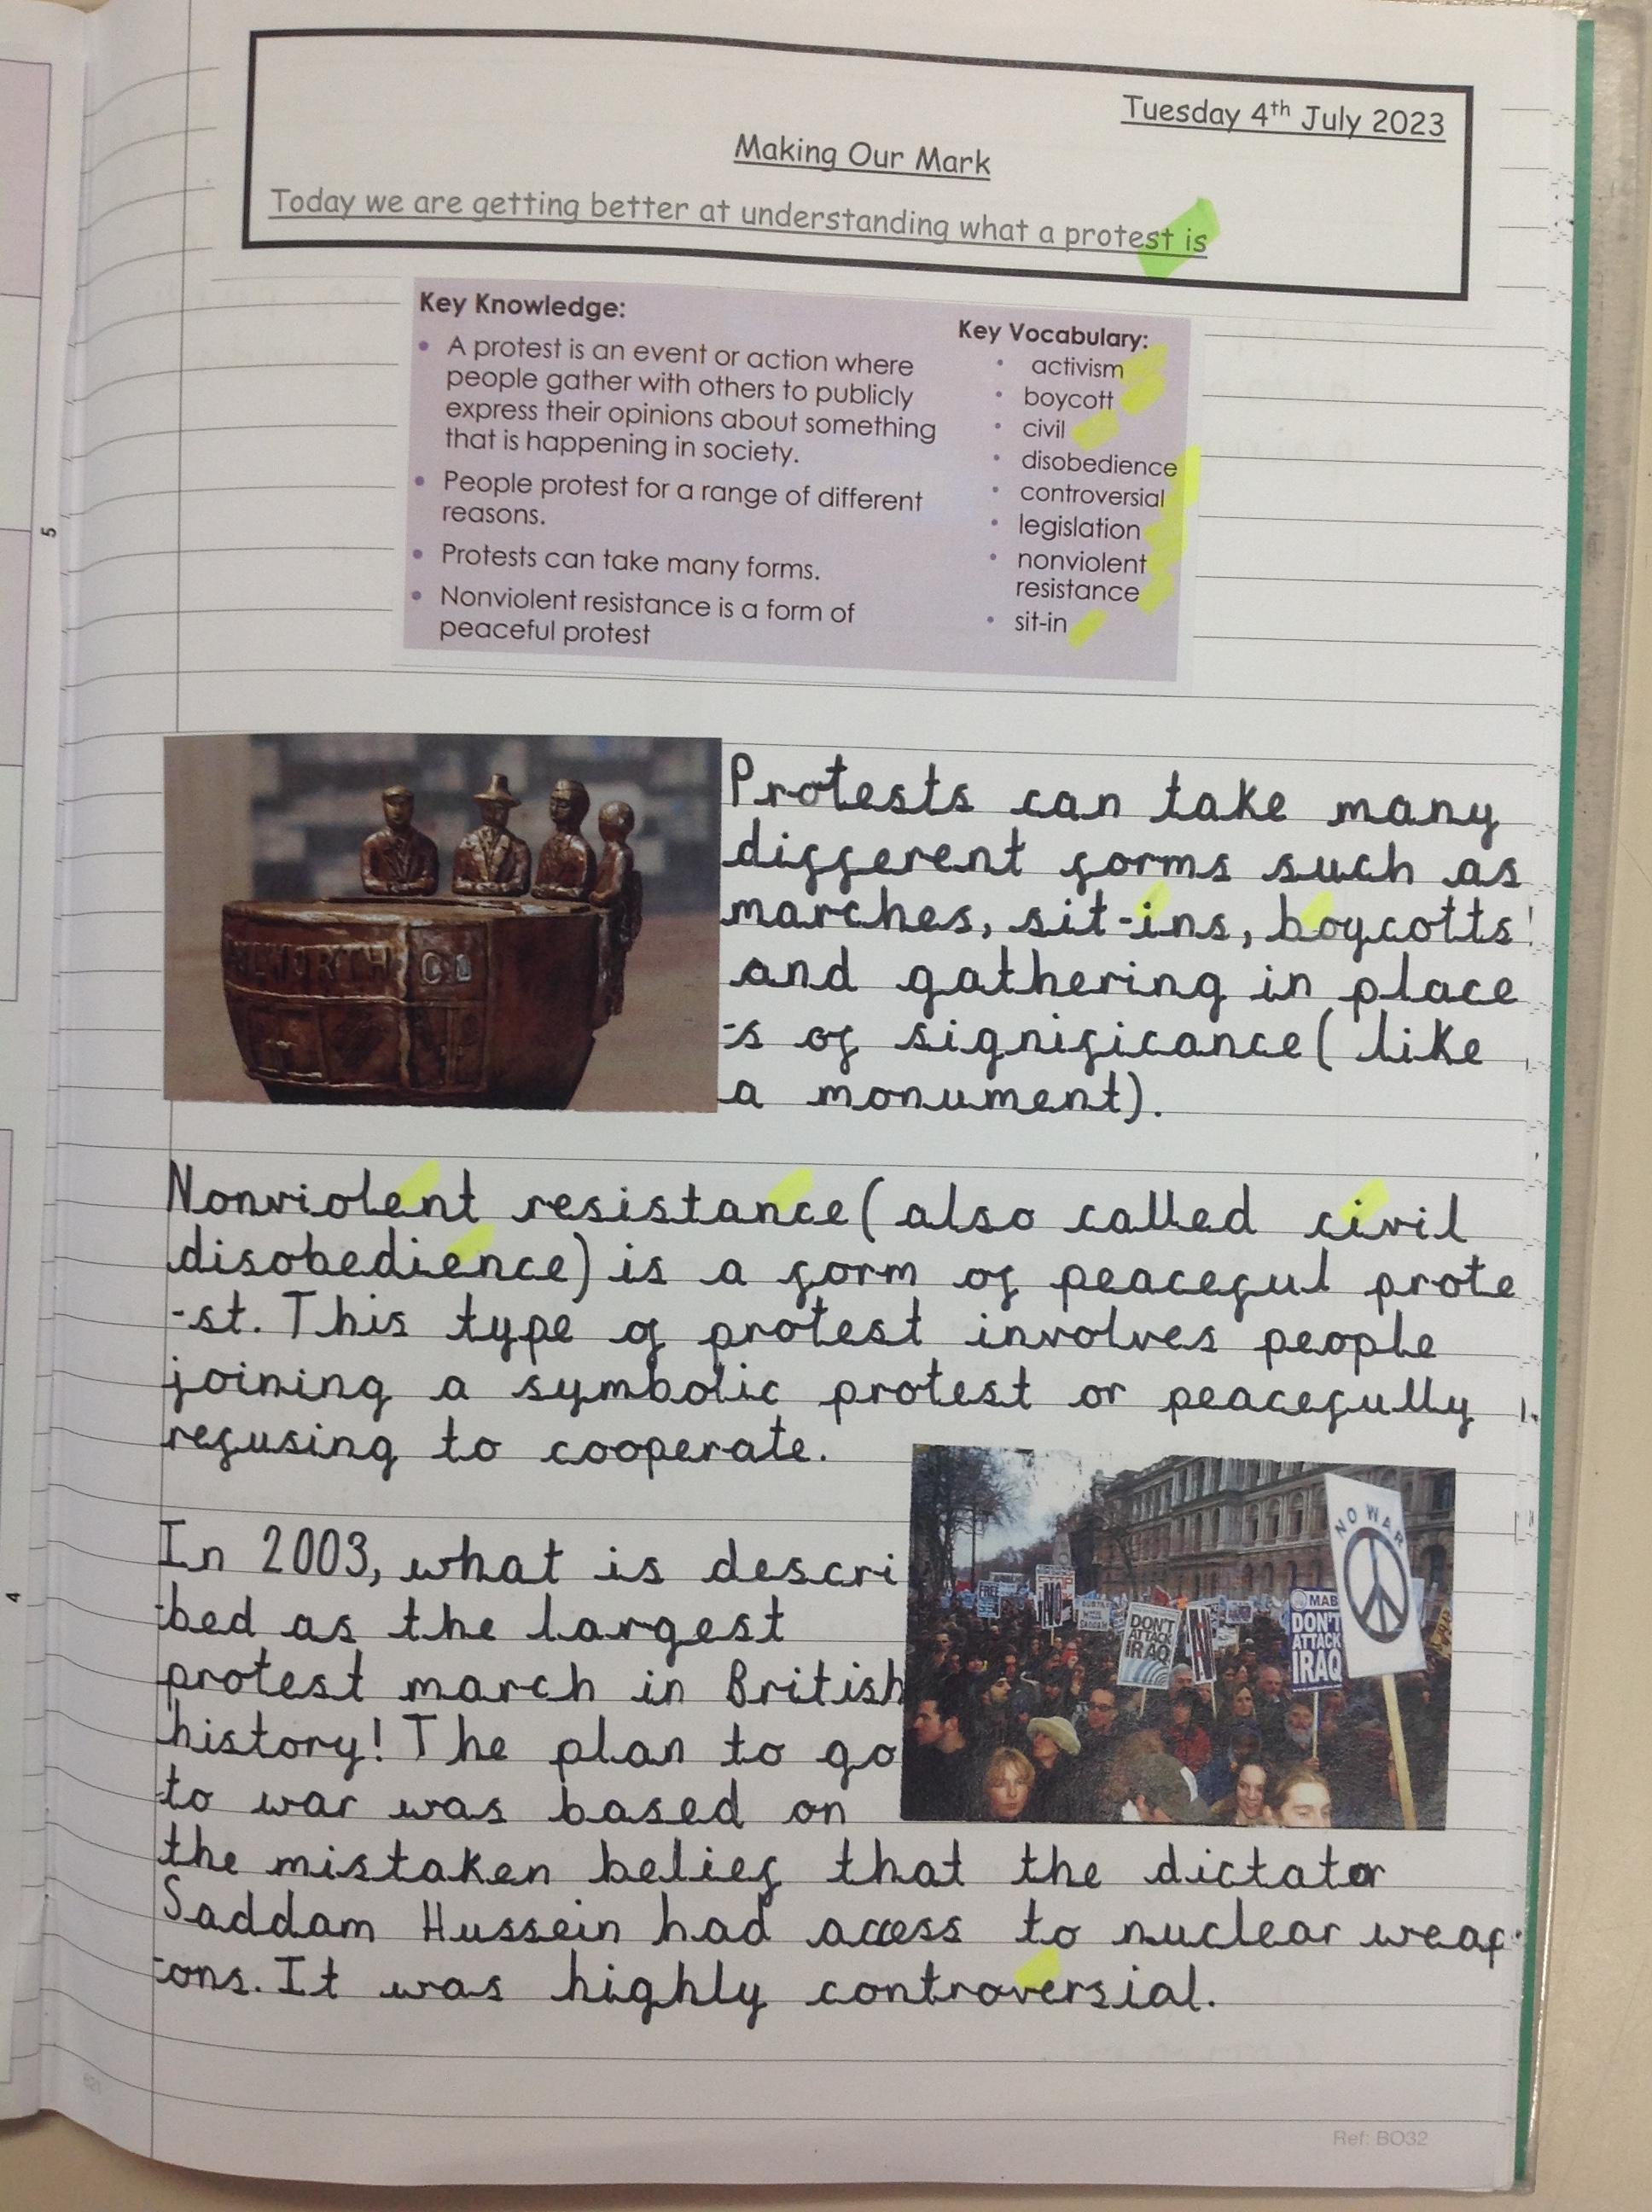 Tuesday 4th July 2023
Making Our Mark
Today we are getting better at understanding what a protest is
Key Knowledge:
• A protest is an event or action where
people gather with others to publicly
express their opinions about something
that is happening in society.
• People protest for a range of different
reasons.
• Protests can take many forms.
• Nonviolent resistance is a form of
peaceful protest
Key Vocabulary:
• activism
• boycott
• civil
• disobedience
• controversial
• legislation
• nonviolent
resistance
• sit-in
Protests can take many
different forms such as
marches, sit-ins, boycotts
and gathering in place
-s of significance( like
a monument).
Nonviolent resistance( also called civil
disobedience) is a form of peaceful prote
-st. This type of protest involves people
joining a symbolic protest or peacefully
refusing to cooperate.
In 2003, what is descri
-bed as the largest
protest march in British
history! The plan to go
to war was based on
the mistaken belief that the dictator
Saddam Hussein had access to nuclear weap
-ons. It was highly controversial.
NO WAR
FREE
DON'T
ATTACK
IRAQ
MAB
DON'T
ATTACK
IRAQ
5
4
621
Ref: BO32